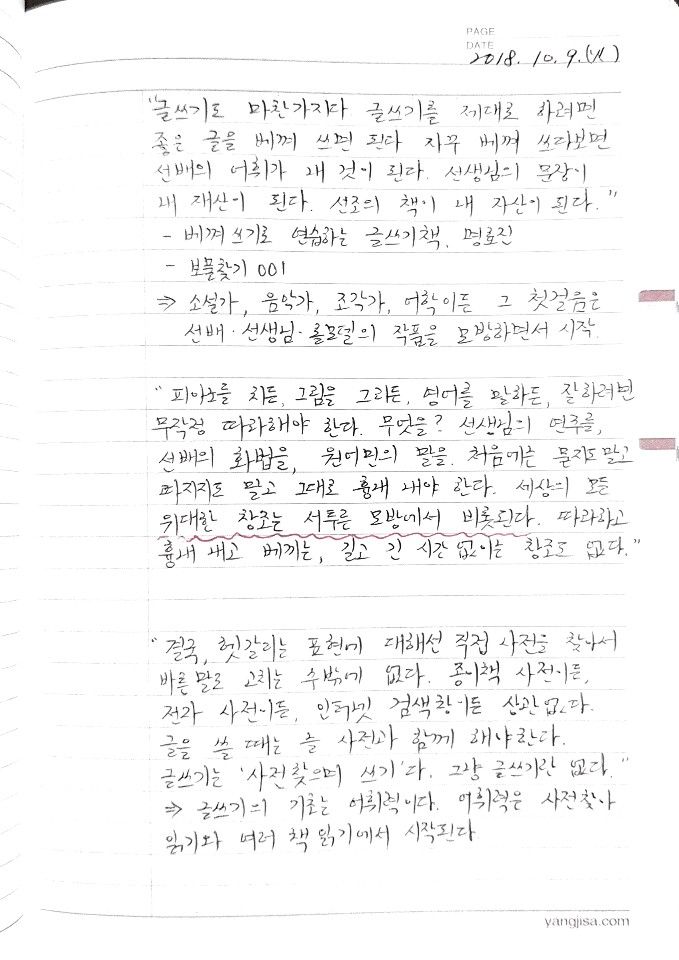 PAGE
DATE
2018. 10. 9. (火)
"글쓰기도 마찬가지다 글쓰기를 제대로 하려면
좋은 글을 베껴 쓰면 된다 자꾸 베껴 쓰다보면
선배의 어휘가 내 것이 된다. 선생님의 문장이
내 재산이 된다. 선조의 책이 내 자산이 된다."
- 베껴쓰기로 연습하는 글쓰기책, 명로진
- 보물찾기 001
⇒ 소설가, 음악가, 조각가, 어학이든 그 첫걸음은
선배·선생님·롤모델의 작품을 모방하면서 시작.
"피아노를 치든, 그림을 그리든, 영어를 말하든, 잘하려면
무작정 따라해야 한다. 무엇을? 선생님의 연주를,
선배의 화법을, 원어민의 말을. 처음에는 묻지도 말고
따지지도 말고 그대로 흉내 내야 한다. 세상의 모든
위대한 창조는 서투른 모방에서 비롯된다. 따라하고
흉내 내고 베끼는, 길고 긴 시간 없이는 창조도 없다."
"결국, 헷갈리는 표현에 대해선 직접 사전을 찾아서
바른말로 고치는 수밖에 없다. 종이책 사전이든,
전자 사전이든, 인터넷 검색창이든 상관없다.
글을 쓸 때는 늘 사전과 함께 해야한다.
글쓰기는 '사전찾으며 쓰기'다. 그냥 글쓰기란 없다."
⇒ 글쓰기의 기초는 어휘력이다. 어휘력은 사전찾아
읽기와 여러 책 읽기에서 시작된다
yangjisa.com